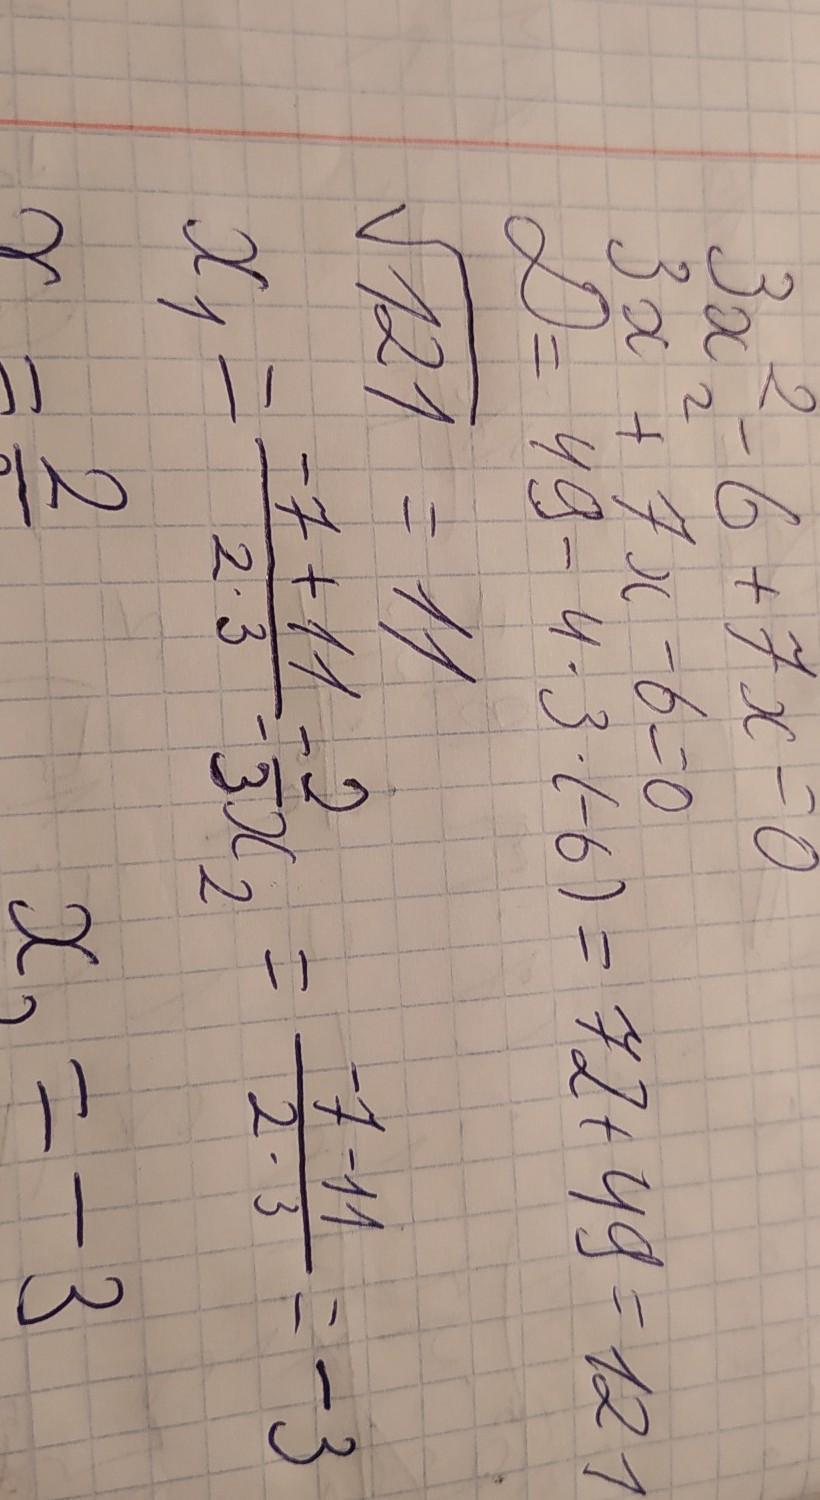 3x² - 6 + 7x = 0
3x² + 7x - 6 = 0
D = 49 - 4 · 3 · (-6) = 72 + 49 = 121
√121 = 11
x₁ = (-7 + 11)/(2 · 3) = 2/3 x₂ = (-7 - 11)/(2 · 3) = -3
x = 2/ x₂ = -3